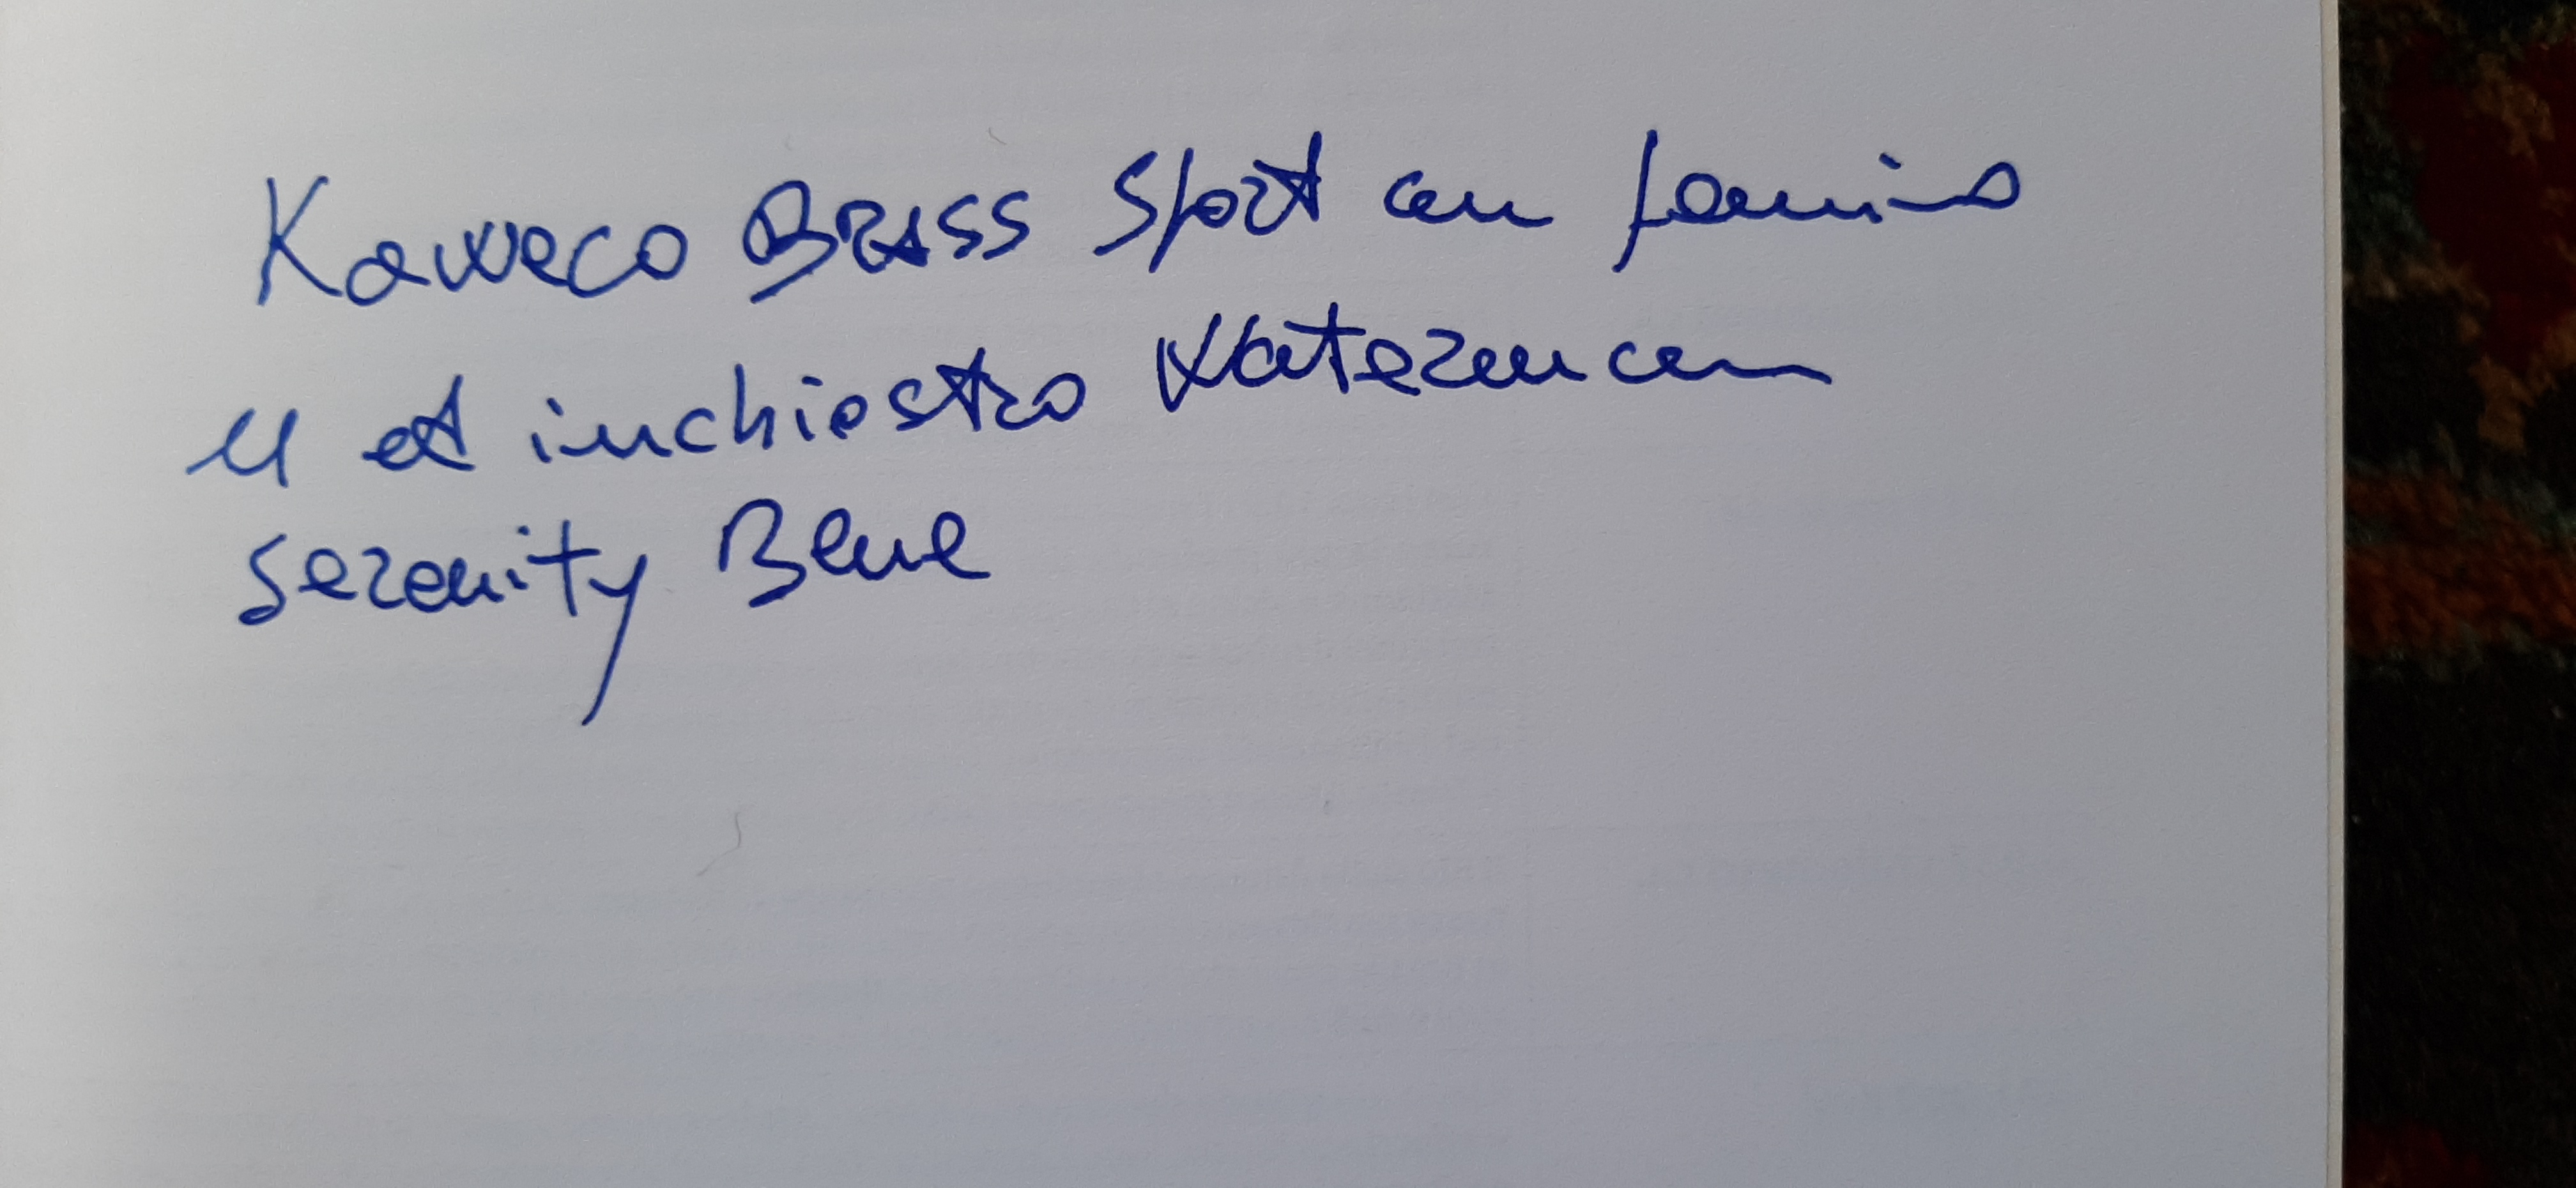 Kaweco BRASS Sport con pennino
M ed inchiostro Waterman
Serenity Blue